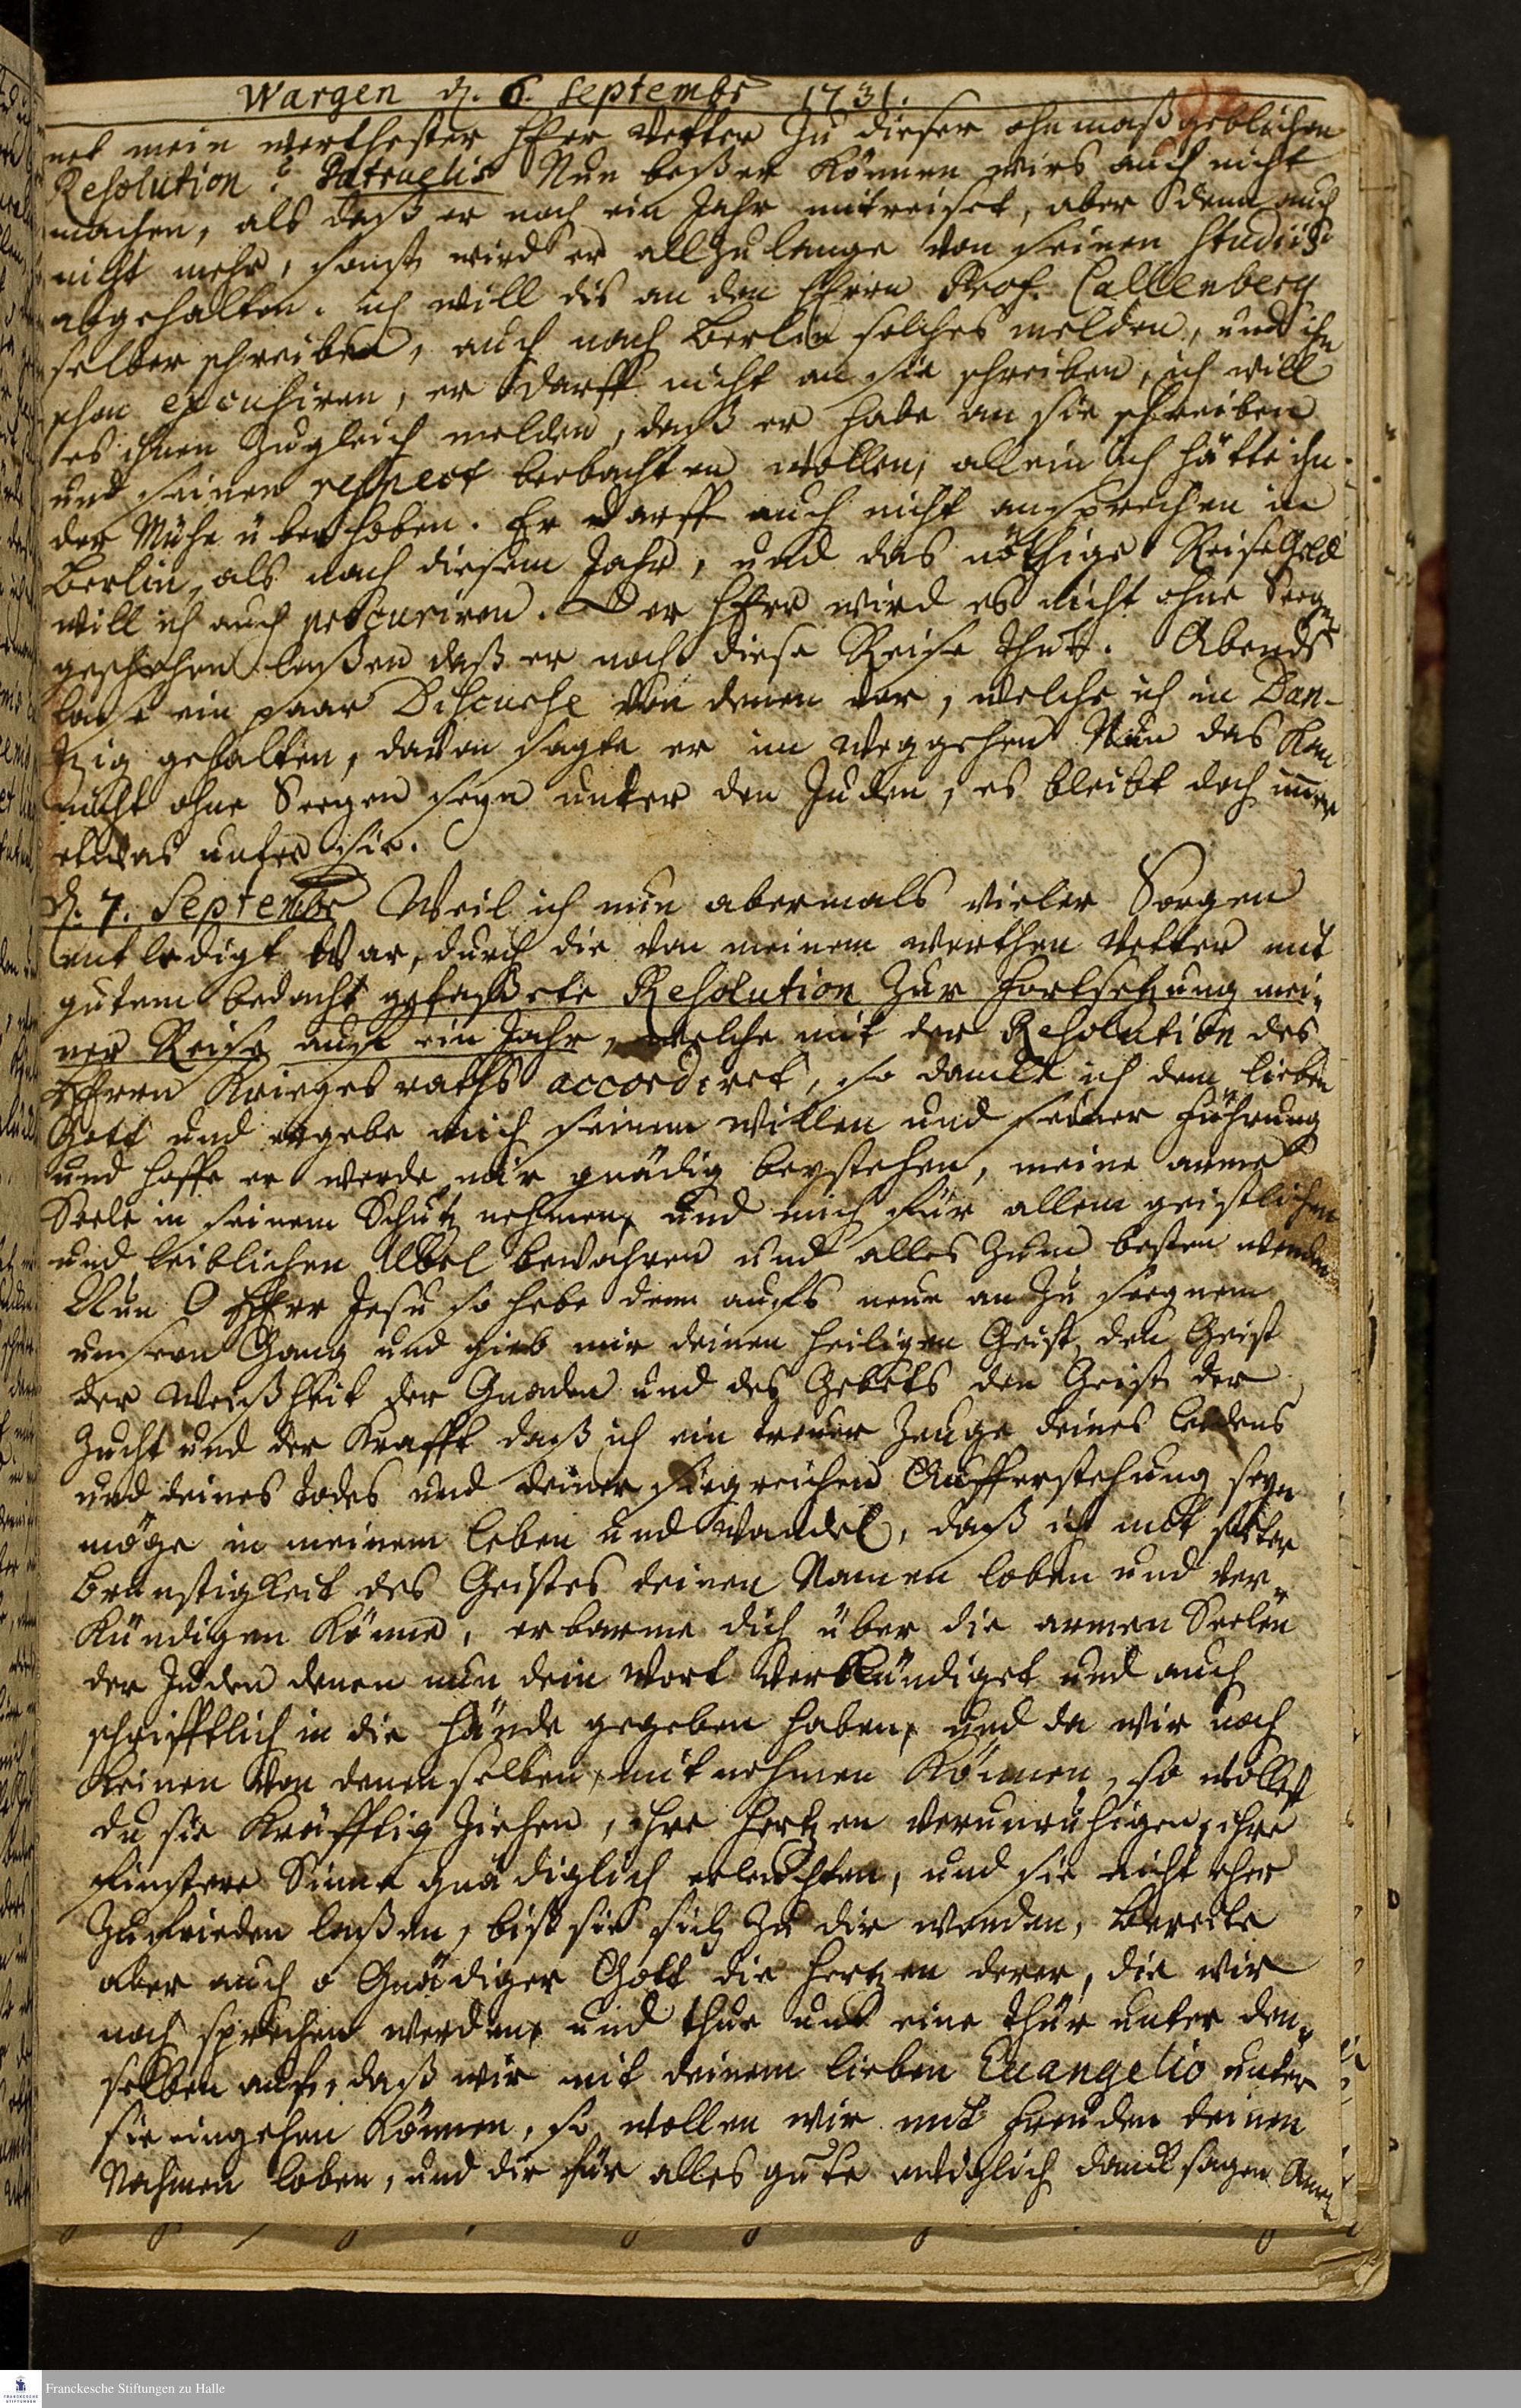 Wargen d. 6. Septembr 1731.
net mein werthester Herr Vetter zu dieser ohnmaßgeblichen
Resolution? Patruelis Nun beßer können wirs auch nicht
machen, als daß er noch ein Jahr mitreiset, aber denn auch
nicht mehr, sonst wird er allzu lange von seinen Studiis
abgehalten. ich will dis an den Herrn Prof. Callenberg
selber schreiben, auch nach Berlin solches melden, und ihn
schon excusiren, er darff nicht an sie schreiben, ich will
es ihnen zugleich melden, daß er habe an sie schreiben
und seinen respect beobachten wollen, allein ich hätte ihn
der Mühe überhoben. Er darff auch nicht ansprechen in
Berlin, als nach diesem Jahr, und das nöthige Reise Geld
will ich auch procuriren. Der Herr wird es nicht ohne Seegen
geschehen laßen daß er noch diese Reise thut. Abends
lase ein paar Discurse von denen vor, welche ich in Dan-
tzig gehalten, davon sagte er im weggehen Nun das kan
nicht ohne Seegen seyn unter den Juden, es bleibt doch immer
etwas unter sie.
d. 7. Septembr Weil ich nun abermals vieler Sorgen
entledigt war, durch die von meinem werthen Vetter mit
gutem bedacht gefaßete Resolution zur Fortsetzung mei-
ner Reise auf ein Jahr, welche mit der Resolution des
Herrn Kriegesraths accordiret, so danckt ich dem lieben
Gott und ergebe mich seinem Willen und seiner Führung
und hoffe er werde mir gnädig beystehen, meine arme
Seele in seinem Schutz nehmen, und mich für allem geistlichen
und leiblichen Übel bewahren und alles zum besten wenden
Nun O Herr Jesu so hebe denn aufs neue an zu seegnen
unsern Gang und gieb mir deinen heiligen Geist, den Geist
der Weißheit der Gnaden und des Gebets den Geist der
Zucht und der Krafft daß ich ein treuer Zeuge deines Leidens
und deines Todes und deiner siegreichen Aufferstehung seyn
möge in meinem Leben und Wandel, daß ich mit
brünstigkeit des Geistes deinen Namen loben und ver-
kündigen könne, erbarme dich über die armen Seelen
der Juden denen nun dein Wort verkündiget und auch
schrifftlich in die Hände gegeben haben, und da wir noch
keinen von denenselben mit nehmen können, so wollest
du sie kräfftig ziehen, ihre Hertzen verunruhigen, ihre
finstere Sinne gnädiglich erleuchten, und sie nicht eher
zufrieden laßen, biß sie sich zu dir wenden, bereite
aber auch o Gnädiger Gott die Hertzen derer, die wir
noch sprechen werden, und thue uns eine Thür unter den-
selben auf, daß wir mit deinem lieben Euangelio unter
sie eingehen können, so wollen wir mit Freuden deinen
Nahmen loben, und dir für alles gute ewiglich danck sagen Amen
Franckesche Stiftungen zu Halle